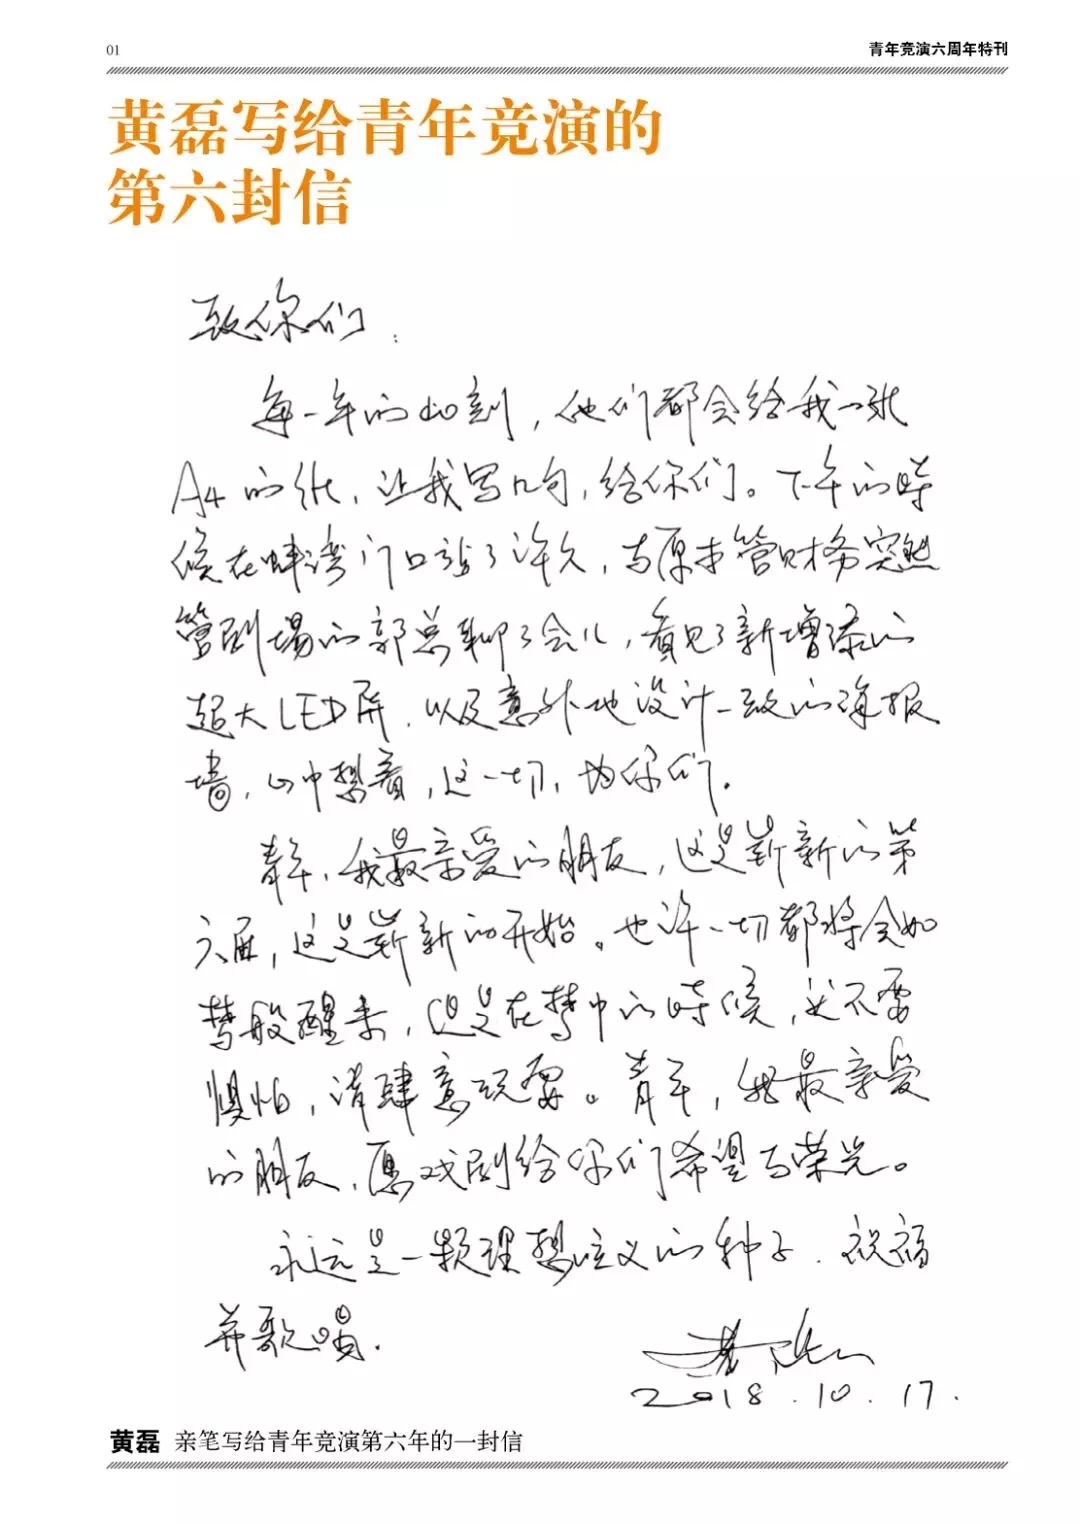 01
青年竞演六周年特刊
黄磊写给青年竞演的
第六封信
致你们：
每一年的此刻，他们都会给我一张
A4的纸，让我写几句，给你们。下午的時
候在蚌湾门口站了许久，与原本管财务突然
管剧場的郭总聊了会儿，看见了新增添的
超大LED屏，以及意外地设计一致的海报
墙，心中想着，这一切，为你们。
青年，我最亲爱的朋友，这是崭新的第
六届，这是崭新的开始。也许一切都将会如
梦般醒来，但是在梦中的時候，必不要
惧怕，请肆意玩耍。青年，我最亲爱
的朋友，愿戏剧给你们希望与荣光。
永远是一颗理想主义的种子，祝福
并歌唱。
黄磊
2018.10.17.
黄磊 亲笔写给青年竞演第六年的一封信